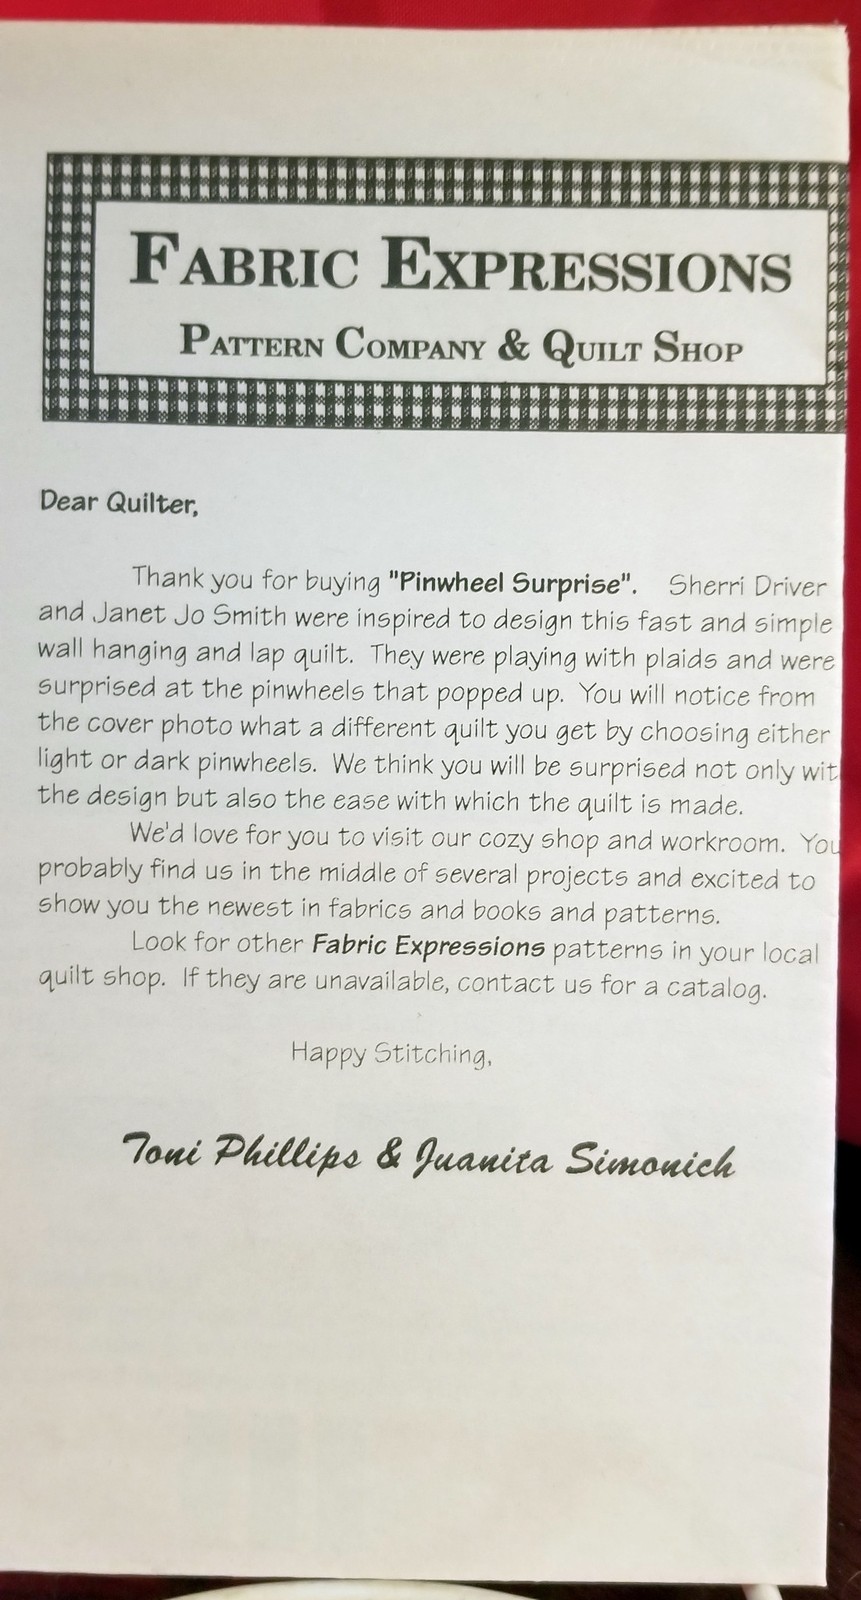 FABRIC EXPRESSIONS
PATTERN COMPANY & QUILT SHOP
Dear Quilter,
Thank you for buying "Pinwheel Surprise". Sherri Driver
and Janet Jo Smith were inspired to design this fast and simple
wall hanging and lap quilt. They were playing with plaids and were
surprised at the pinwheels that popped up. You will notice from
the cover photo what a different quilt you get by choosing either
light or dark pinwheels. We think you will be surprised not only wit
the design but also the ease with which the quilt is made.
We'd love for you to visit our cozy shop and workroom. You
probably find us in the middle of several projects and excited to
show you the newest in fabrics and books and patterns.
Look for other Fabric Expressions patterns in your local
quilt shop. If they are unavailable, contact us for a catalog.
Happy Stitching,
Toni Phillips & Juanita Simonich